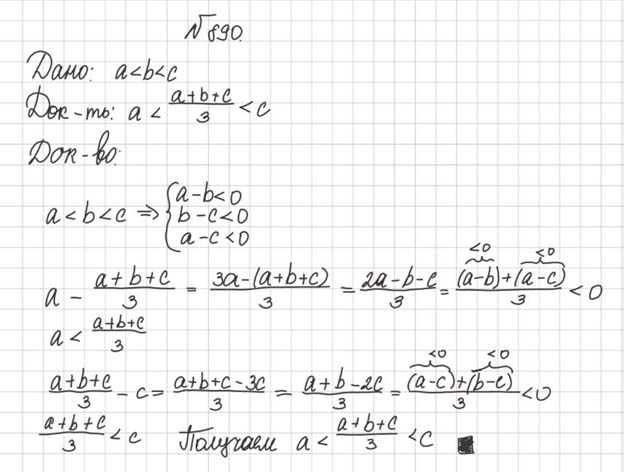 №890.
Дано: a<b<c
Док-ть: a < (a+b+c)/3 < c
Док-во:
a<b<c ⇒ { a-b<0
b-c<0
a-c<0
a - (a+b+c)/3 = (3a-(a+b+c))/3 = (2a-b-c)/3 = ((a-b)+(a-c))/3 < 0
<0 <0
a < (a+b+c)/3
(a+b+c)/3 - c = (a+b+c-3c)/3 = (a+b-2c)/3 = ((a-c)+(b-c))/3 < 0
<0 <0
(a+b+c)/3 < c Получаем a < (a+b+c)/3 < c ■